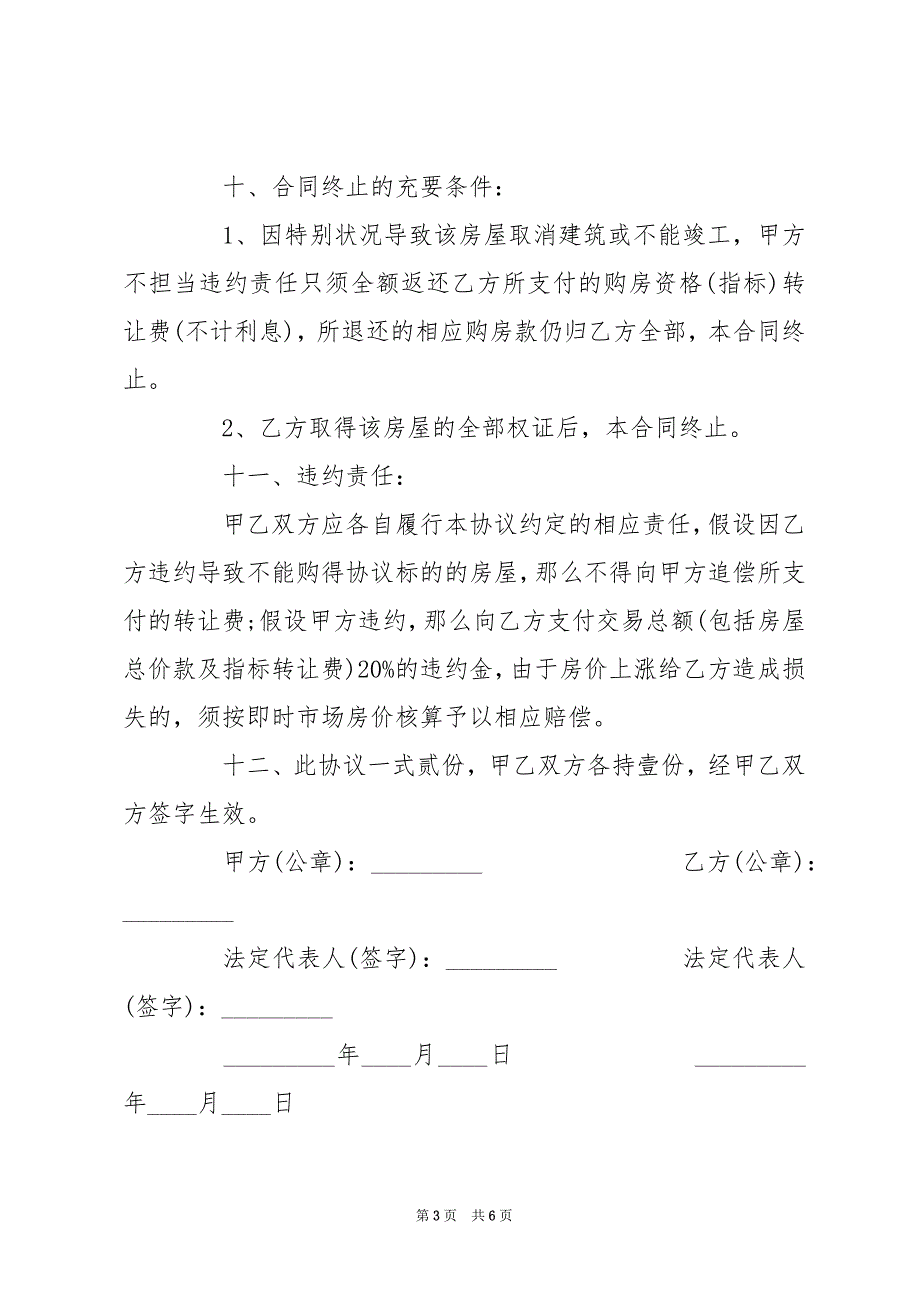 十、合同终止的充要条件：
1、因特别状况导致该房屋取消建筑或不能竣工，甲方
不担当违约责任只须全额返还乙方所支付的购房资格(指标)转
让费(不计利息)，所退还的相应购房款仍归乙方全部，本合同终
止。
2、乙方取得该房屋的全部权证后，本合同终止。
十一、违约责任：
甲乙双方应各自履行本协议约定的相应责任，假设因乙
方违约导致不能购得协议标的的房屋，那么不得向甲方追偿所支
付的转让费;假设甲方违约，那么向乙方支付交易总额(包括房屋
总价款及指标转让费)20%的违约金，由于房价上涨给乙方造成损
失的，须按即时市场房价核算予以相应赔偿。
十二、此协议一式贰份，甲乙双方各持壹份，经甲乙双
方签字生效。
甲方(公章)：_________ 乙方(公章)：
_________
法定代表人(签字)：_________ 法定代表人
(签字)：_________
_________年____月____日 _________
年____月____日
第 3 页 共 6 页